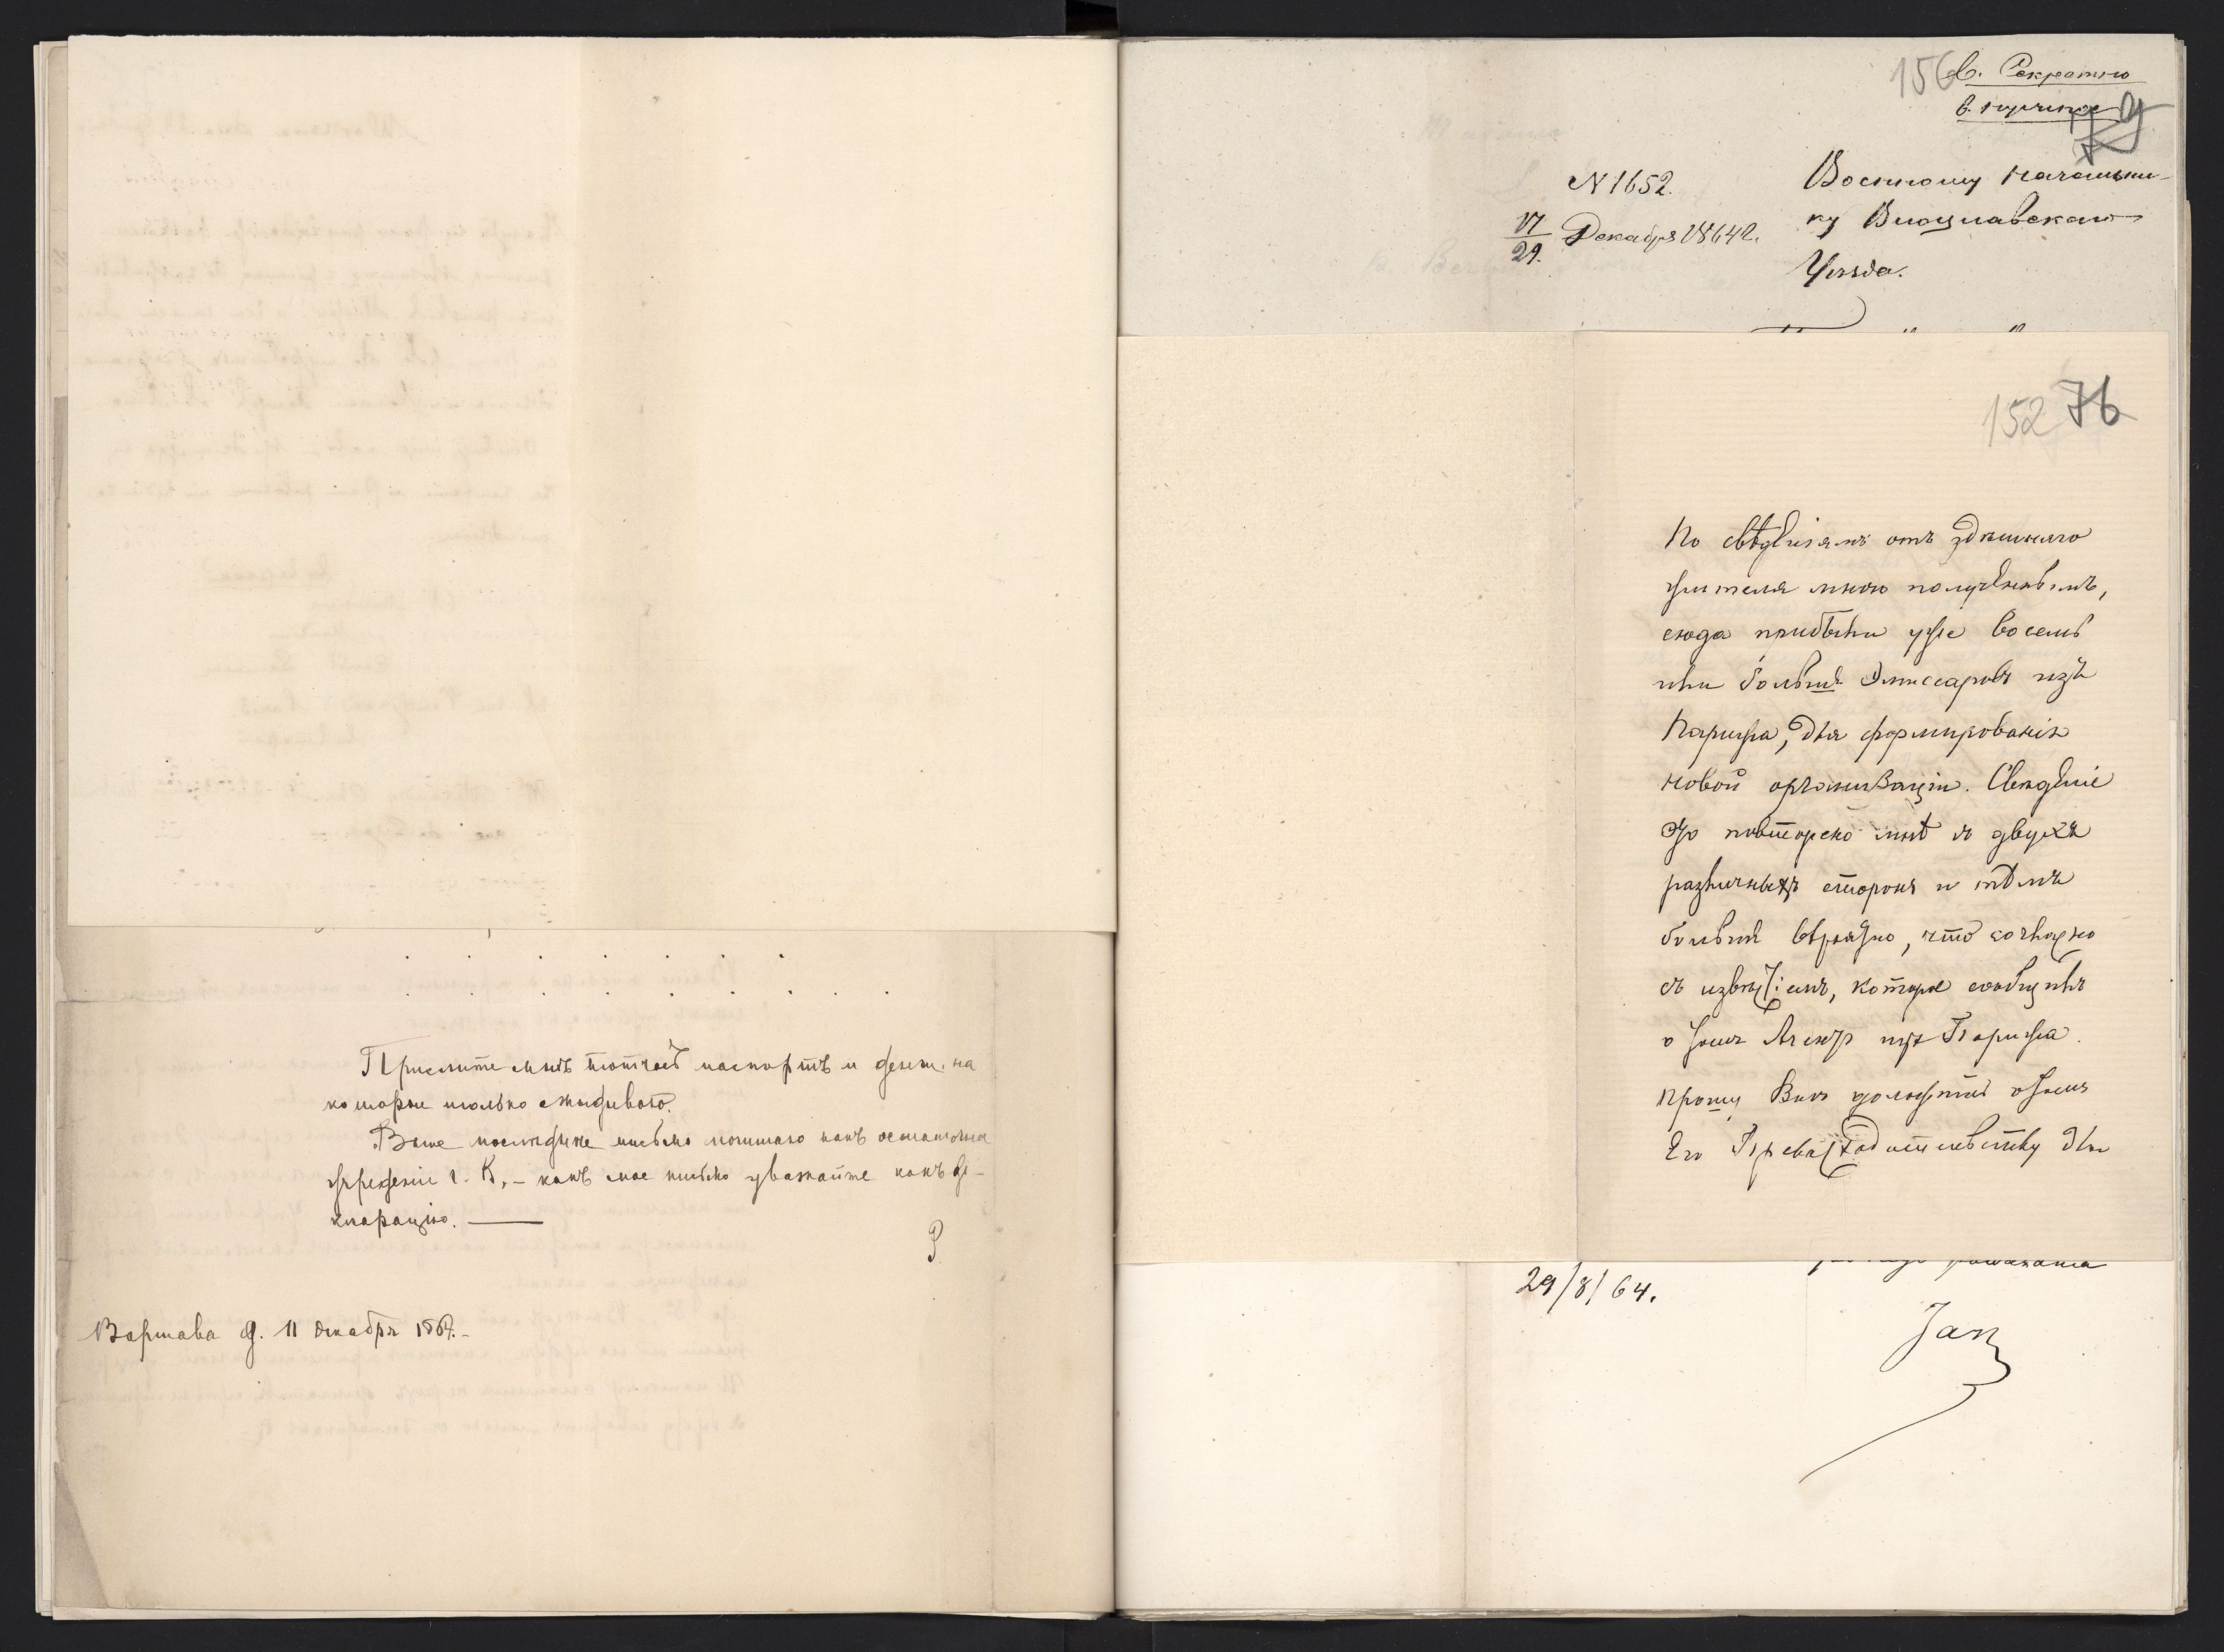 Пришлите мнѣ тотчасъ паспортъ и деньги, на
которые только ожидываю.
Ваше последнее письмо почитаю какъ
г. К, – какъ мое письмо уважайте какъ де-
кларацію. —
Варшава д. 11 декабря 1864. –
156 в. Секретно
N 1652.
17/29. Декабря 1864 г.
Военному Начальни-
ку Влоцлавскаго
Уѣзда.
152 76
По свѣдѣніямъ отъ здѣшняго
жителя мною полученнымъ,
сюда прибыли уже восемь
или больше Эмиссаровъ изъ
Парижа, для формированія
новой организаціи. Свѣдѣніе
это повторено мнѣ съ двухъ
различныхъ сторонъ и тѣмъ
больше вѣроятно, что согласно
съ извѣстіемъ, которое сообщилъ
о томъ Агентъ изъ Парижа.
Прошу Васъ доложить о томъ
Его Превосходительству для
29/8/64.
Jan